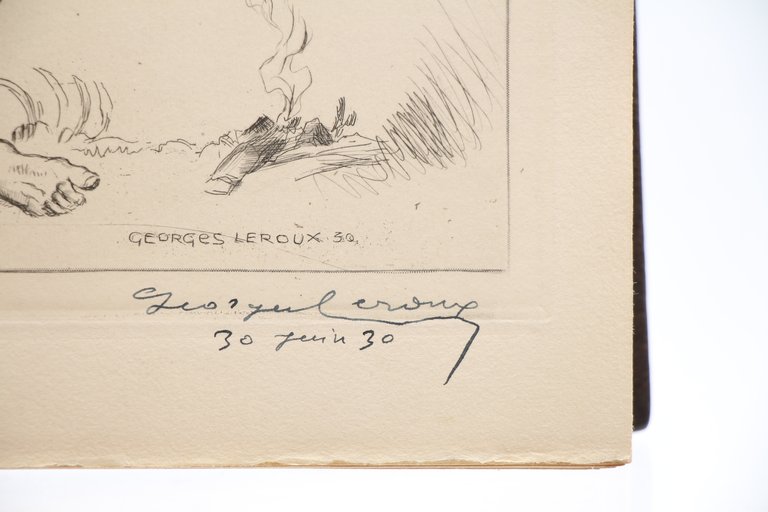 GEORGES LEROUX 30.
Georges Leroux
30 juin 30